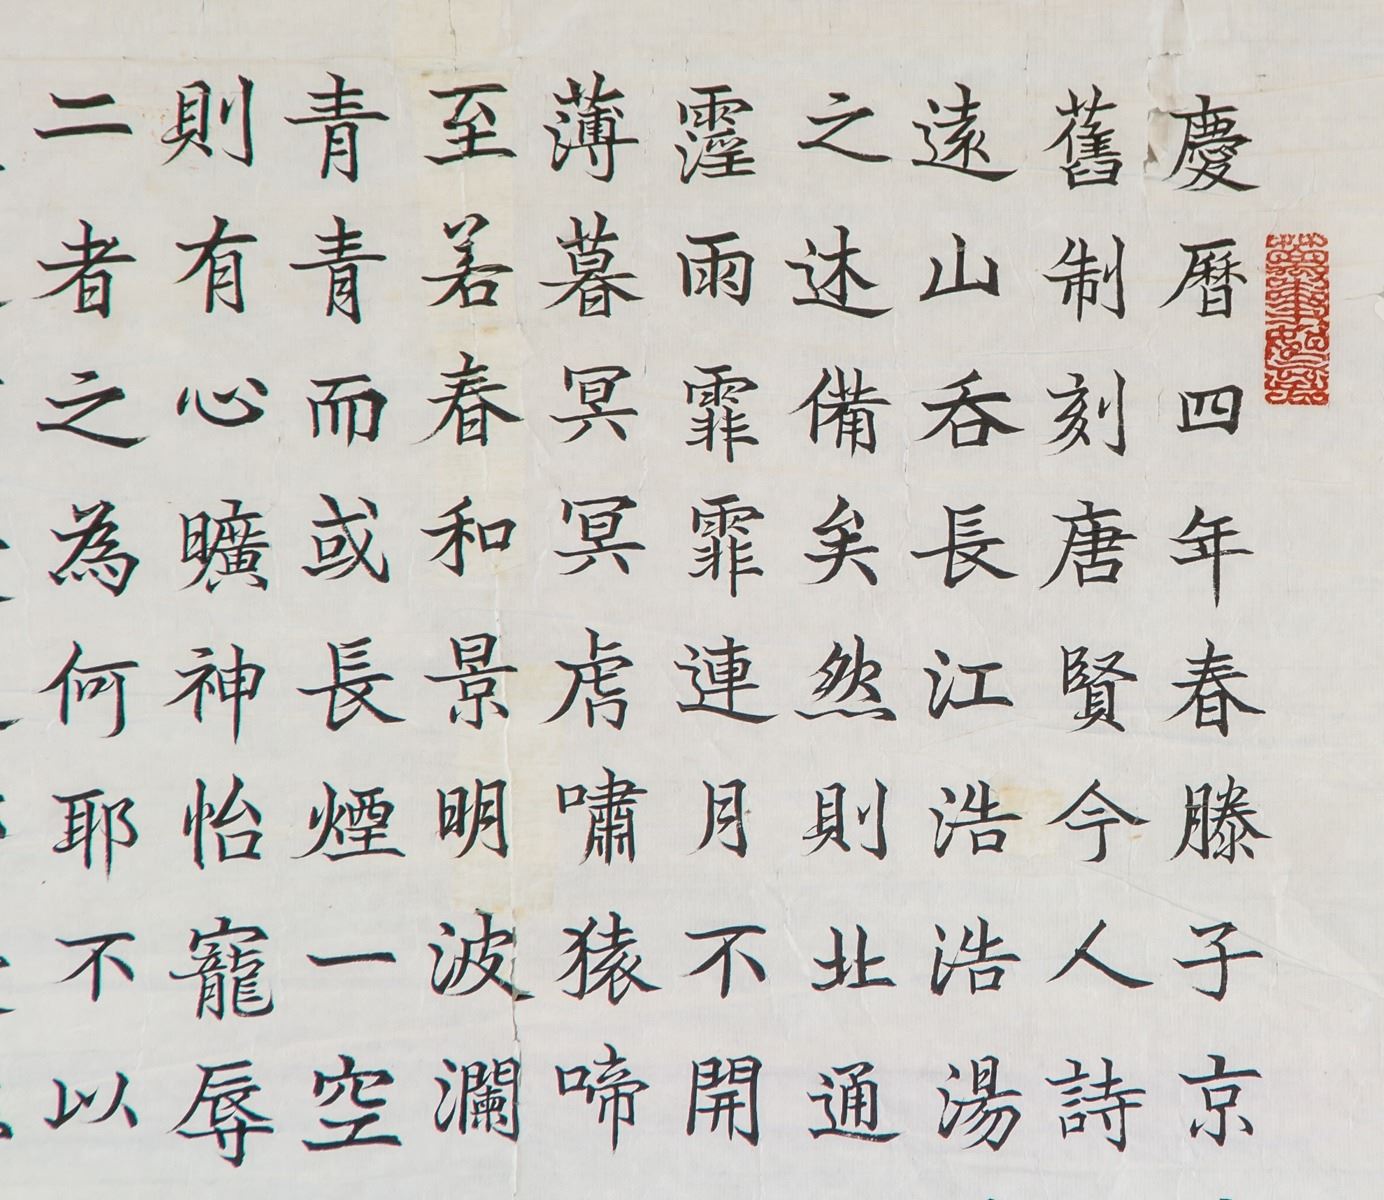 慶曆四年春滕子京
舊制刻唐賢今人詩
遠山吞長江浩浩湯
之述備矣然則北通
霪雨霏霏連月不開
薄暮冥冥虎嘯猿啼
至若春和景明波瀾
青青而或長煙一空
則有心曠神怡寵辱
二者之為何耶不以